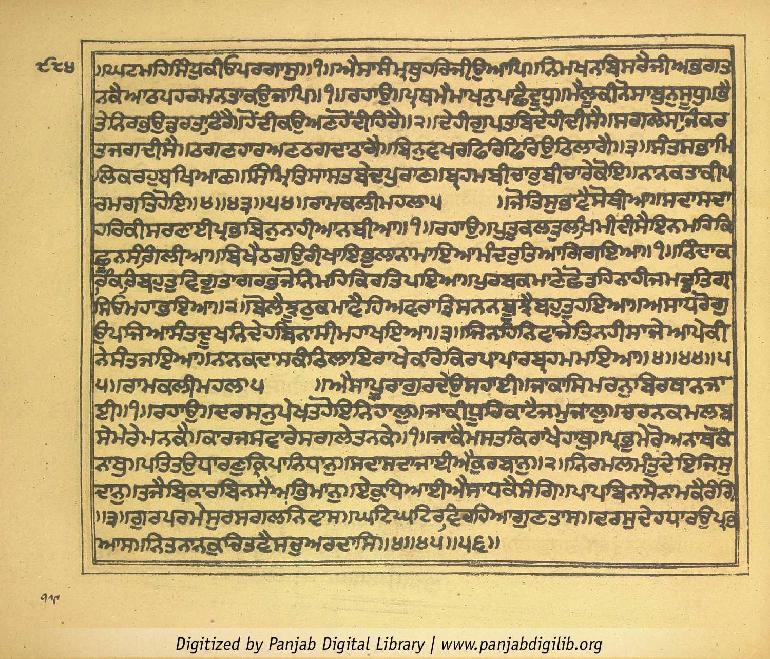 ॥ਘਟਮਹਿਸਿੰਧੁਕੀਓਪਰਗਾਸੁ॥੧॥ਐਸਾਸੰਮ੍ਰਥੁਹਰਿਜੀਉਆਪਿ॥ਨਿਮਖਨਬਿਸਰੈਜੀਅਭਗਤ
ਨਕੈਆਠਪਹਰਮਨਤਾਕਉਜਾਪਿ॥੧॥ਰਹਾਉ॥ਪ੍ਰਥਮੇਮਾਖਨੁਪਾਛੈਦੂਧੁ॥ਮੈਲੂਕੀਨੋਸਾਬੁਨੁਸੂਧੁ॥ਭੈ
ਤੇਨਿਰਭਉਡਰਤਾਫਿਰੈ॥ਹੋਂਦੀਕਉਅਣਹੋਂਦੀਹਿਰੈ॥੨॥ਦੇਹੀਗੁਪਤਬਿਦੇਹੀਦੀਸੈ॥ਸਗਲੇਸਾਜਿਕਰ
ਤਜਗਦੀਸੈ॥ਠਗਣਹਾਰਅਣਠਗਦਾਠਾਗੈ॥ਬਿਨੁਵਖਰਫਿਰਿਫਿਰਿਉਠਿਲਾਗੈ॥੩॥ਸੰਤਸਭਾਮਿ
ਲਿਕਰਹੁਬਖਿਆਣ॥ਸਿੰਮ੍ਰਿਤਿਸਾਸਤਬੇਦਪੁਰਾਣ॥ਬ੍ਰਹਮਬੀਚਾਰੁਬੀਚਾਰੇਕੋਇ॥ਨਾਨਕਤਾਕੀਪ
ਰਮਗਤਿਹੋਇ॥੪॥੪੩॥੫੪॥ਰਾਮਕਲੀਮਹਲਾ੫ ॥ਜੋਤਿਸੁਭਾਵੈਸੋਥੀਆ॥ਸਦਾਸਦਾ
ਹਰਿਕੀਸਰਣਾਈਪ੍ਰਭਬਿਨੁਨਾਹੀਆਨਬੀਆ॥੧॥ਰਹਾਉ॥ਪੁਤੁਕਲਤ੍ਰੁਲਖਿਮੀਦੀਸੈਇਨਮਹਿਕਿ
ਛੂਨਸੰਗਿਲੀਆ॥ਬਿਖੈਠਗਉਰੀਖਾਇਭੁਲਾਨਾਮਾਇਆਮੰਦਰੁਤਿਆਗਿਗਇਆ॥੧॥ਨਿੰਦਾਕ
ਰਿਕਰਿਬਹੁਤੁਵਿਗੂਤਾਗਰਭਜੋਨਿਮਹਿਕਿਰਤਿਪਇਆ॥ਪੁਰਬਕਮਾਣੇਛੋਡਹਿਨਾਹੀਜਮਦੂਤਿਗ੍ਰਾ
ਸਿਓਮਹਾਭਇਆ॥੨॥ਬੋਲੈਝੂਠੁਕਮਾਵੈਅਵਰਾਤ੍ਰਿਸਨਨਬੂਝੈਬਹੁਤੁਹਇਆ॥ਅਸਾਧਰੋਗੁ
ਉਪਜਿਆਸੰਤਦੂਖਨਿਦੇਹਬਿਨਾਸੀਮਹਾਖਇਆ॥੩॥ਜਿਨਹਿਨਿਵਾਜੇਤਿਨਹੀਸਾਜੇਆਪੇਕੀ
ਨੇਸੰਤਜਇਆ॥ਨਾਨਕਦਾਸਕੰਠਿਲਾਇਰਾਖੇਕਰਿਕਿਰਪਾਪਾਰਬ੍ਰਹਮਮਇਆ॥੪॥੪੪॥੫
੫॥ਰਾਮਕਲੀਮਹਲਾ੫ ॥ਐਸਾਪੂਰਾਗੁਰਦੇਉਸਹਾਈ॥ਜਾਕਾਸਿਮਰਨੁਬਿਰਥਾਨਜਾ
ਈ॥੧॥ਰਹਾਉ॥ਦਰਸਨੁਪੇਖਤਹੋਇਨਿਹਾਲੁ॥ਜਾਕੀਧੂਰਿਕਾਟੈਜਮਜਾਲੁ॥ਚਰਨਕਮਲਬ
ਸੇਮੇਰੇਮਨਕੇ॥ਕਾਰਜਸਵਾਰੇਸਗਲੇਤਨਕੇ॥੧॥ਜਾਕੈਮਸਤਕਿਰਾਖੈਹਾਥੁ॥ਪ੍ਰਭੁਮੇਰੋਅਨਾਥਕੋ
ਨਾਥੁ॥ਪਤਿਤਉਧਾਰਣੁਕ੍ਰਿਪਾਨਿਧਾਨੁ॥ਸਦਾਸਦਾਜਾਈਐਕੁਰਬਾਨੁ॥੨॥ਨਿਰਮਲਮੰਤੁਦੇਇਜਿਸੁ
ਦਾਨੁ॥ਤਜੈਬਿਕਾਰਬਿਨਸੈਅਭਿਮਾਨੁ॥ਏਕੁਧਿਆਈਐਸਾਧਕੈਸੰਗਿ॥ਪਾਪਬਿਨਾਸੇਨਾਮਕੈਰੰਗਿ
॥੩॥ਗੁਰਪਰਮੇਸੁਰਸਗਲਨਿਵਾਸ॥ਘਟਿਘਟਿਰਵਿਰਹਿਆਗੁਣਤਾਸ॥ਦਰਸੁਦੇਹਿਧਾਰਉਪ੍ਰਭ
ਆਸ॥ਨਿਤਨਾਨਕੁਚਿਤਵੈਸਚੁਅਰਦਾਸਿ॥੪॥੪੫॥੫੬॥
Digitized by Panjab Digital Library | www.panjabdigilib.org